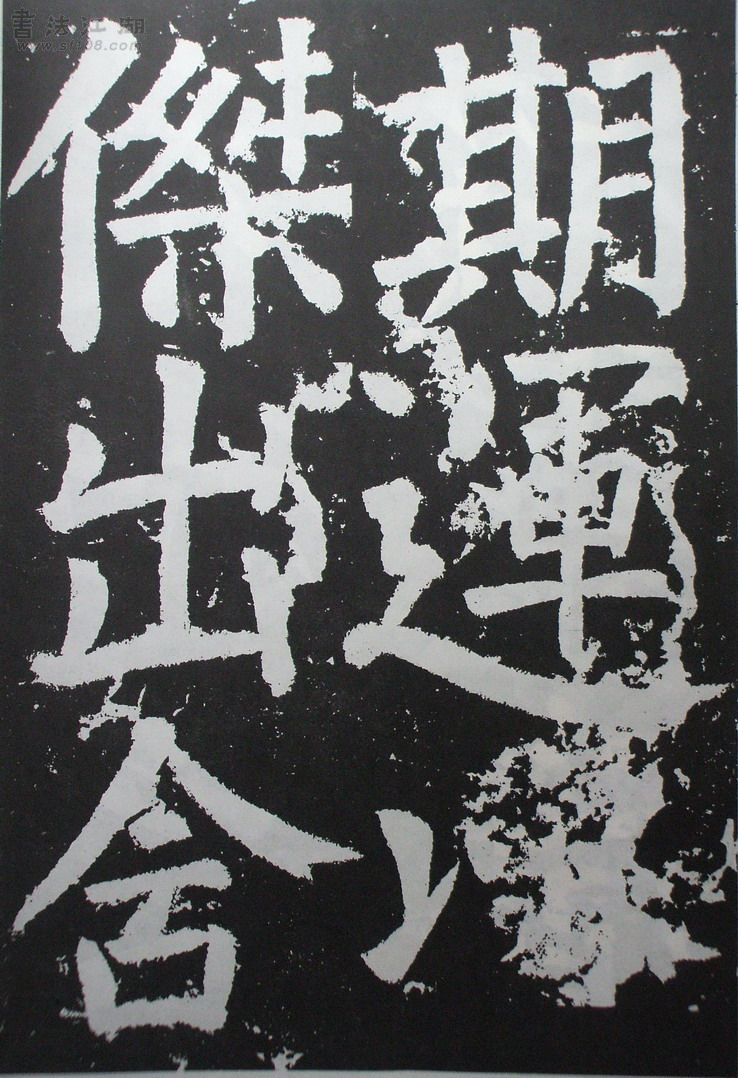 書法江湖
www.sf108.com
期運
傑出含